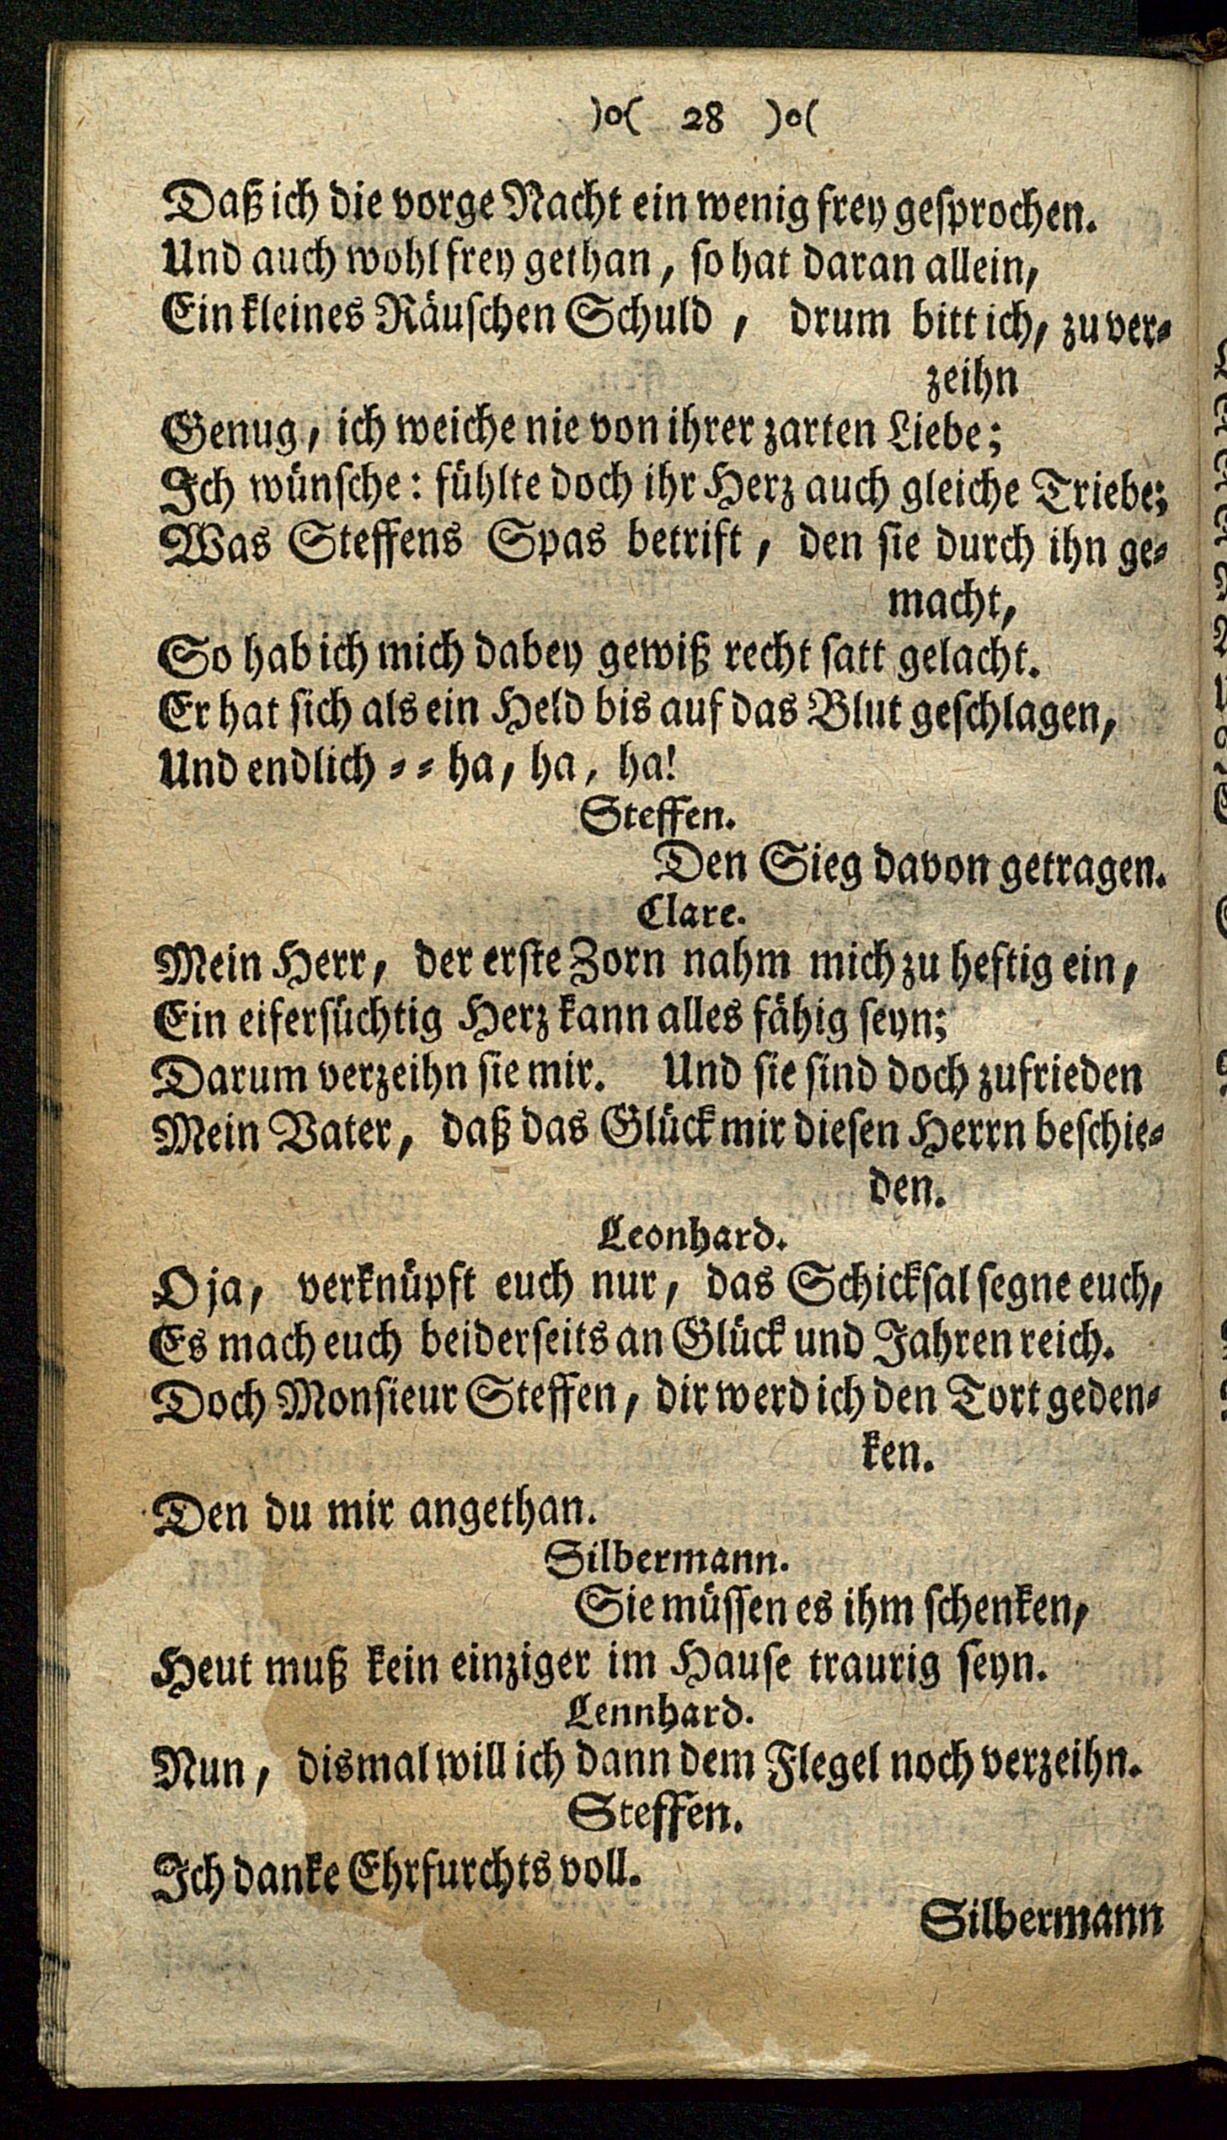 )o( 28 )o(
Daß ich die vorge Nacht ein wenig frey gesprochen.
Und auch wohl frey gethan, so hat daran allein,
Ein kleines Räuschen Schuld, drum bitt ich, zu ver⸗
zeihn
Genug, ich weiche nie von ihrer zarten Liebe;
Ich wünsche: fühlte doch ihr Herz auch gleiche Triebe;
Was Steffens Spas betrift, den sie durch ihn ge⸗
macht,
So hab ich mich dabey gewiß recht satt gelacht.
Er hat sich als ein Held bis auf das Blut geschlagen,
Und endlich ⸗ ⸗ ha, ha, ha!
Steffen.
Den Sieg davon getragen.
Clare.
Mein Herr, der erste Zorn nahm mich zu heftig ein,
Ein eifersüchtig Herz kann alles fähig seyn;
Darum verzeihn sie mir. Und sie sind doch zufrieden
Mein Vater, daß das Glück mir diesen Herrn beschie⸗
den.
Leonhard.
O ja, verknüpft euch nur, das Schicksal segne euch,
Es mach euch beiderseits an Glück und Jahren reich.
Doch Monsieur Steffen, dir werd ich den Tort geden⸗
ken.
Den du mir angethan.
Silbermann.
Sie müssen es ihm schenken,
Heut muß kein einziger im Hause traurig seyn.
Lennhard.
Nun, dismal will ich dann dem Flegel noch verzeihn.
Steffen.
Ich danke Ehrfurchts voll.
Silbermann